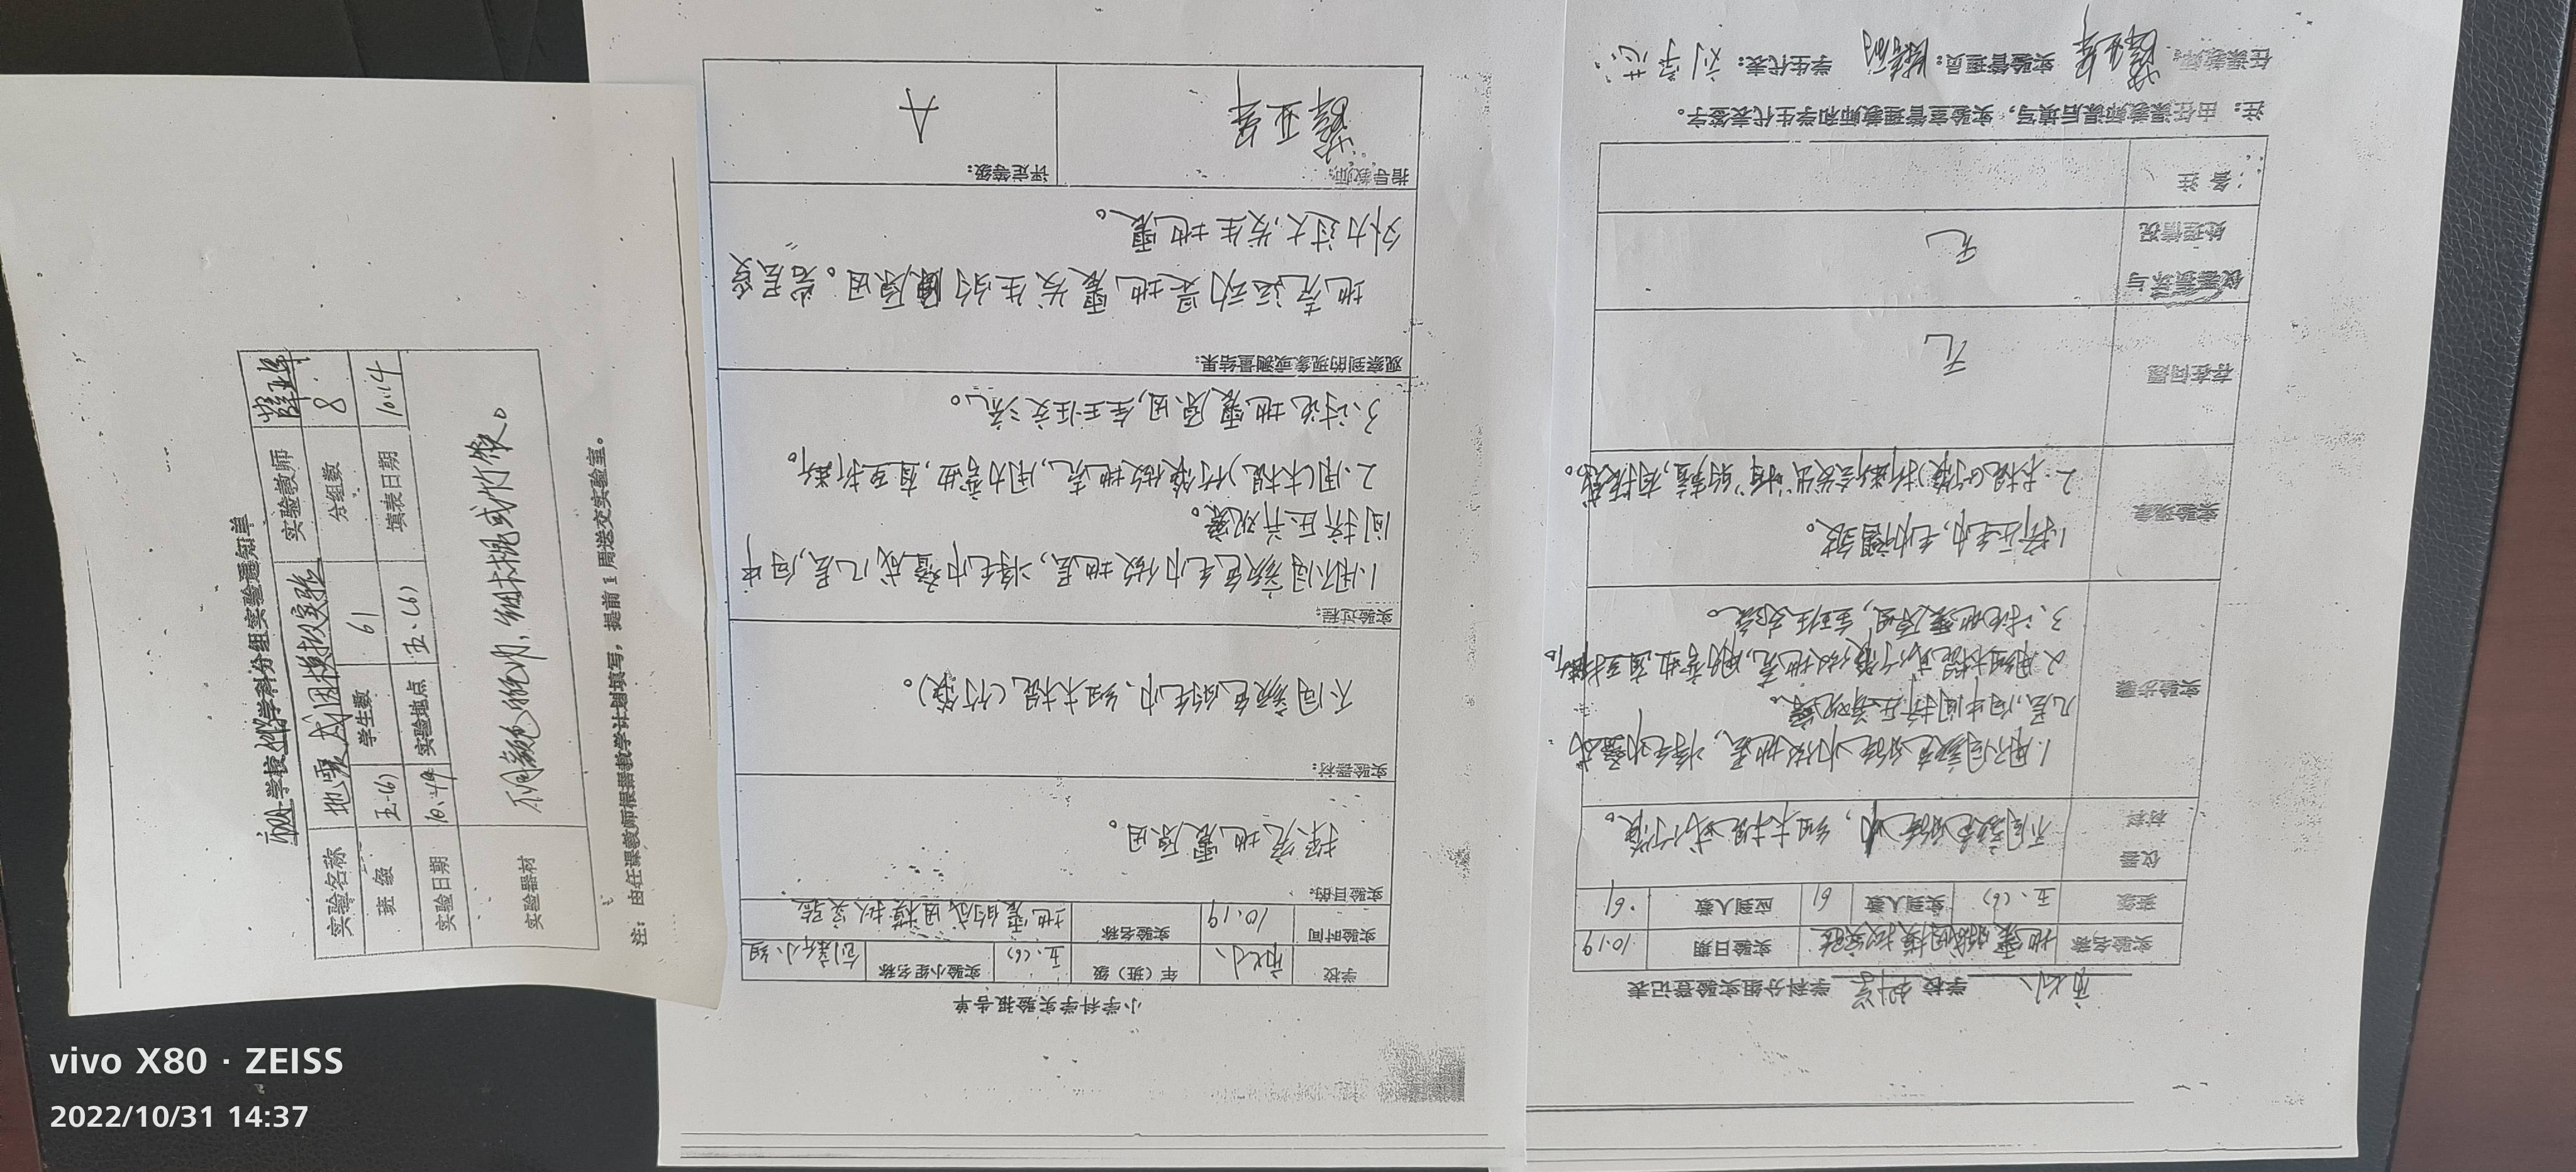 学校科学学科分组实验通知单
实验名称 地震成因模拟实验 实验教师 薛亚军
班 级 五.(6) 学生数 61 分组数 8
实验日期 10.19 实验地点 五.(6) 填表日期 10.14
实验器材 不同颜色的毛巾,细木棍或竹筷。
注: 由任课教师根据教学计划填写, 提前 1 周送交实验室。
小学科学实验报告单
学校 年(班)级 五.(6) 实验小组名称 创新小组
实验时间 10.19 实验名称 地震的成因模拟实验
实验目的:
探究地震原因。
实验器材:
不同颜色的毛巾、细木棍(竹筷)。
实验过程:
1.用不同颜色毛巾做地层,将毛巾叠成几层,向中
间挤压并观察。
2.用(木棍)竹筷做地壳,用力弯曲,直至折断。
3、讨论地震原因,全班交流。
观察到的现象或测量结果:
地壳运动是地震发生的原因。岩层受
外力过大,发生地震。
指导教师: 薛亚军 评定等级: A
学校 科学 学科分组实验登记表
实验名称 地震的成因模拟实验 实验日期 10.19
班级 五.(6) 实到人数 61 应到人数 61
仪器材料 不同颜色的毛巾,细木棍或竹筷。
实验步骤
1.用不同颜色的毛巾做地层,将毛巾叠成
几层,向中间挤压并观察。
2.用细木棍或竹筷做地壳,用力弯曲,直至折断。
3、讨论地震原因,全班交流。
实验现象
1.挤压毛巾,毛巾褶皱。
存在问题 无
仪器损坏与处理情况 无
备 注
注: 由任课教师课后填写, 实验室管理教师和学生代表签字。
任课教师: 薛亚军 实验管理员: 学生代表: 刘字芯
vivo X80 · ZEISS
2022/10/31 14:37